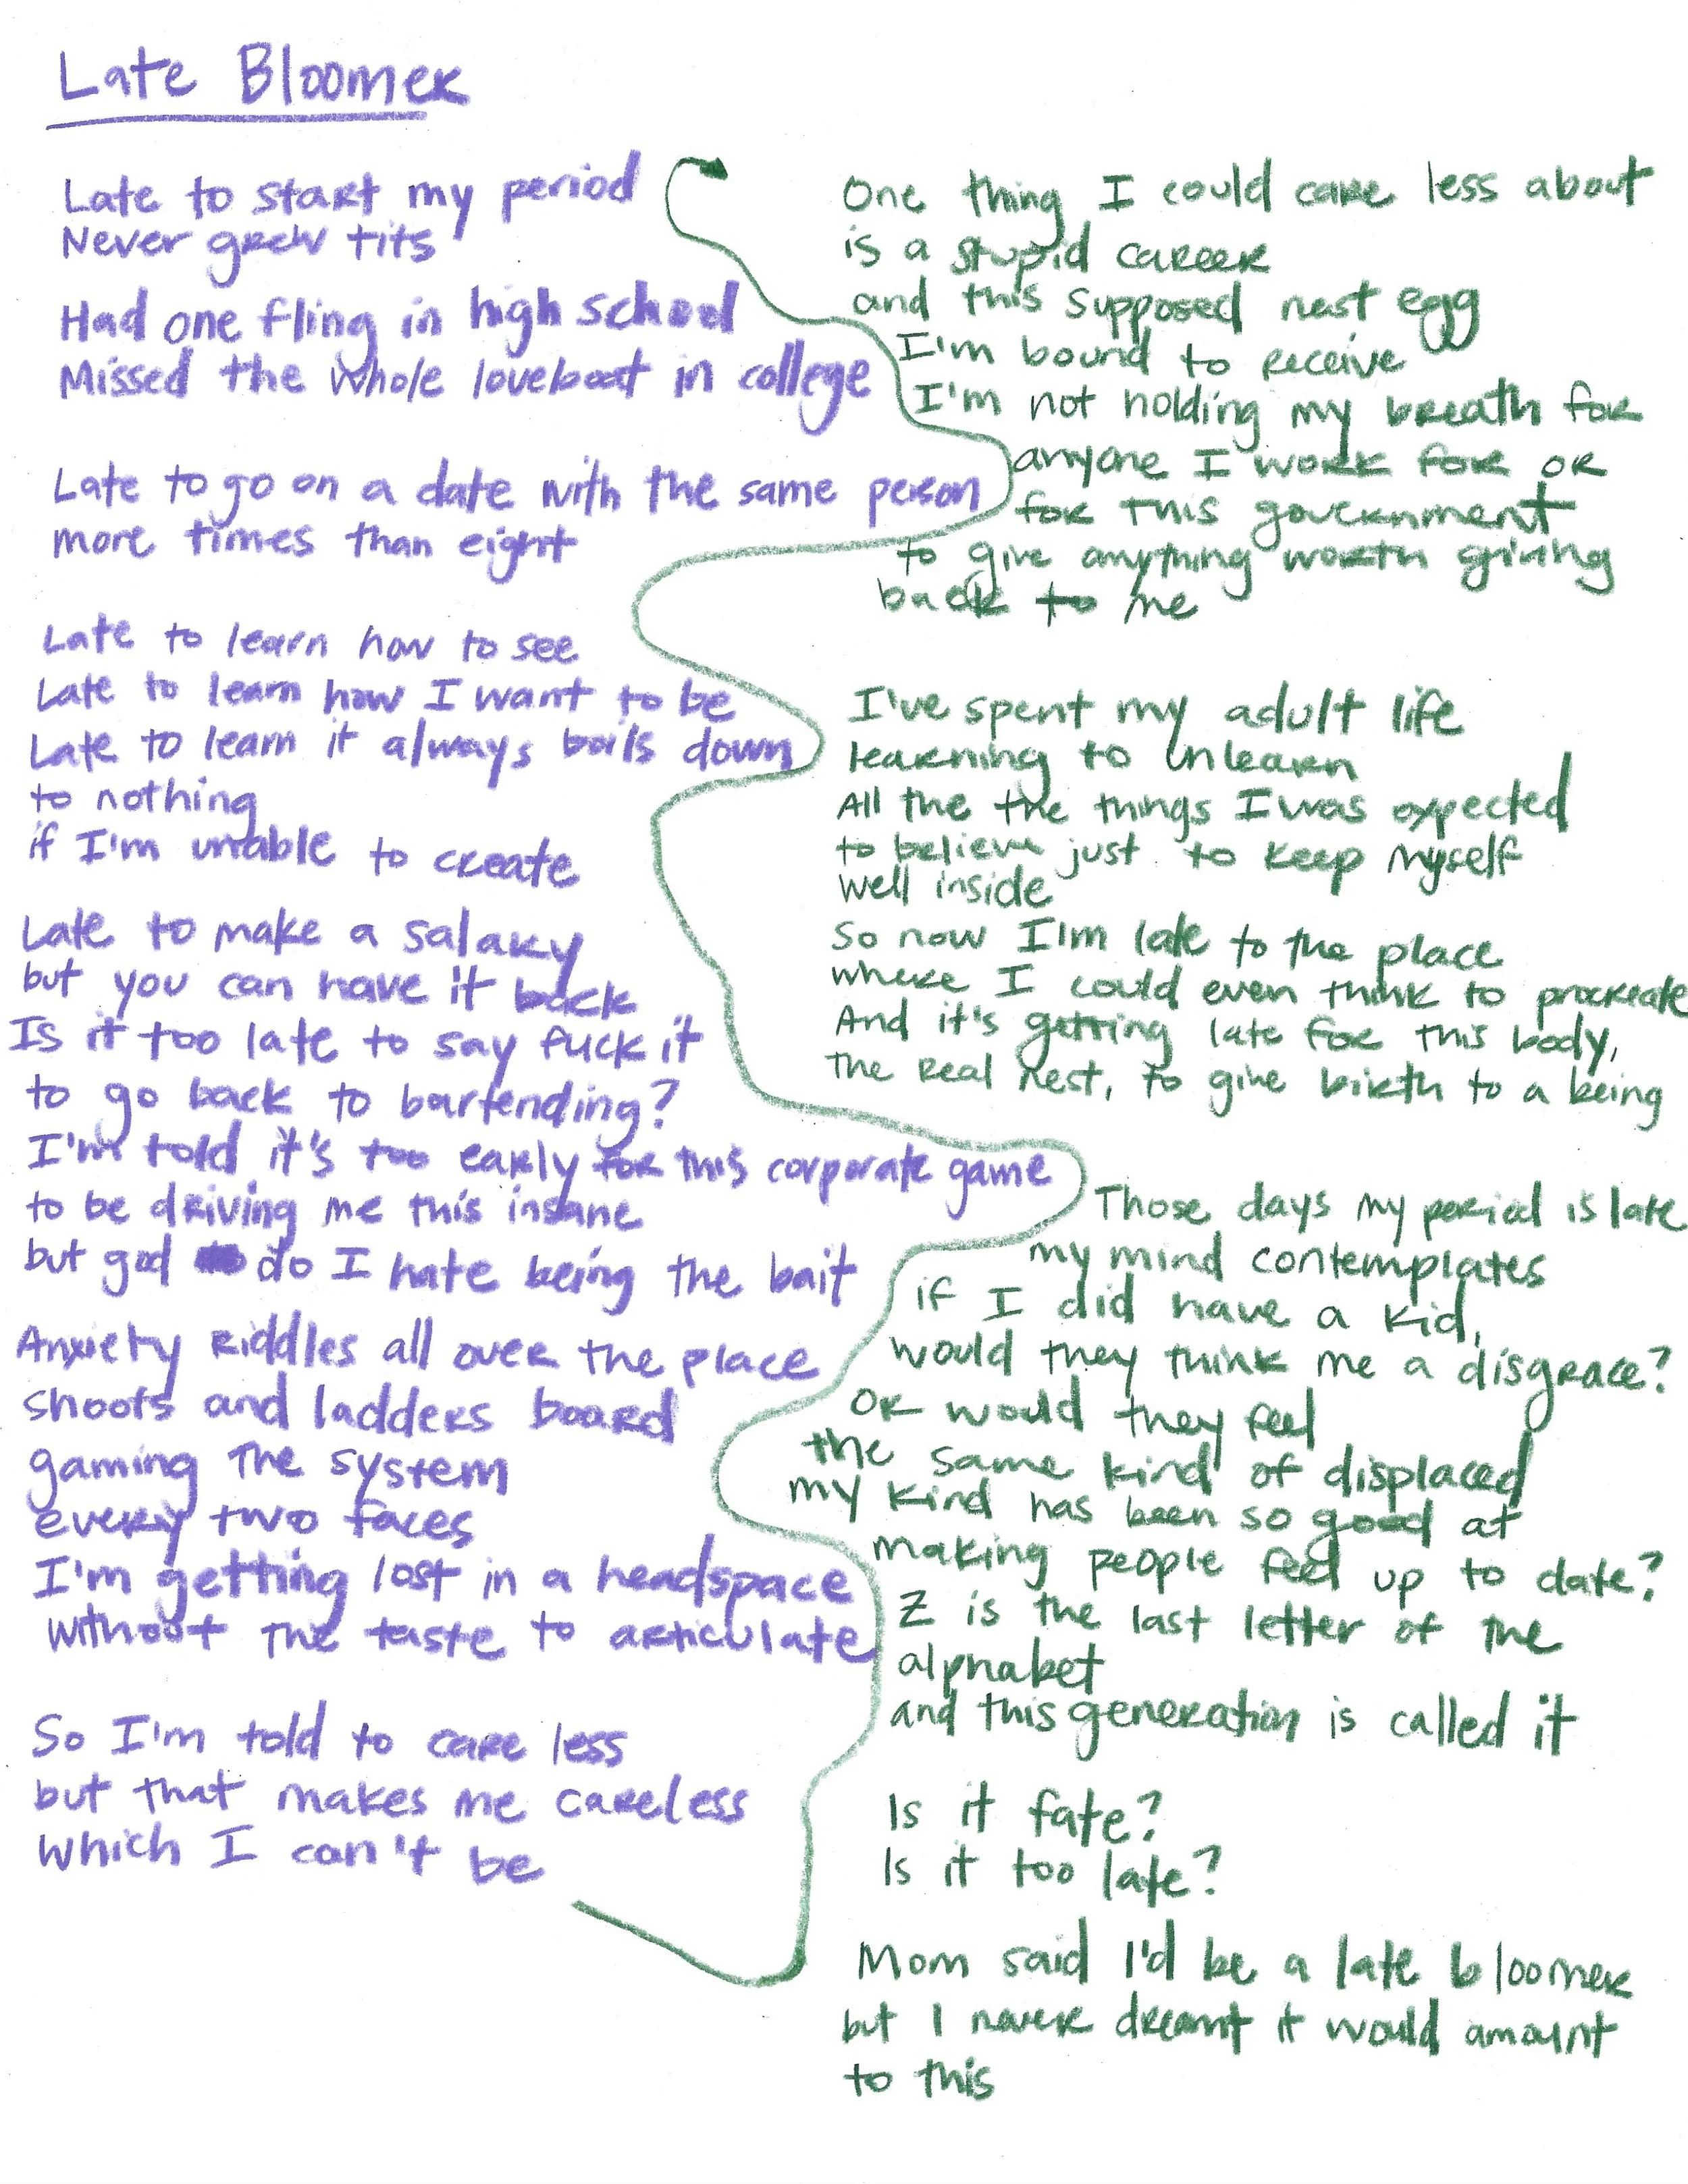 Late Bloomer
Late to start my period
Never grew tits
Had one fling in high school
Missed the whole loveboat in college
Late to go on a date with the same person
more times than eight
Late to learn how to see
Late to learn how I want to be
Late to learn it always boils down
to nothing
if I'm unable to create
Late to make a salary
but you can have it back
Is it too late to say fuck it
to go back to bartending?
I'm told it's too early for this corporate game
to be driving me this insane
but god do I hate being the bait
Anxiety riddles all over the place
shoots and ladders board
gaming the system
every two faces
I'm getting lost in a headspace
without the taste to articulate
So I'm told to care less
but that makes me careless
which I can't be
One thing I could care less about
is a stupid career
and this supposed nest egg
I'm bound to receive
I'm not holding my breath for
anyone I work for or
for this government
to give anything worth giving
back to me
I've spent my adult life
learning to unlearn
All the the things I was expected
to believe just to keep myself
well inside
So now I'm late to the place
where I could even think to procreate
And it's getting late for this body,
the real nest, to give birth to a being
Those days my period is late
my mind contemplates
if I did have a kid,
would they think me a disgrace?
or would they feel
the same kind of displaced
my kind has been so good at
making people feel up to date?
Z is the last letter of the
alphabet
and this generation is called it
Is it fate?
Is it too late?
Mom said I'd be a late bloomer
but I never dreamt it would amount
to this